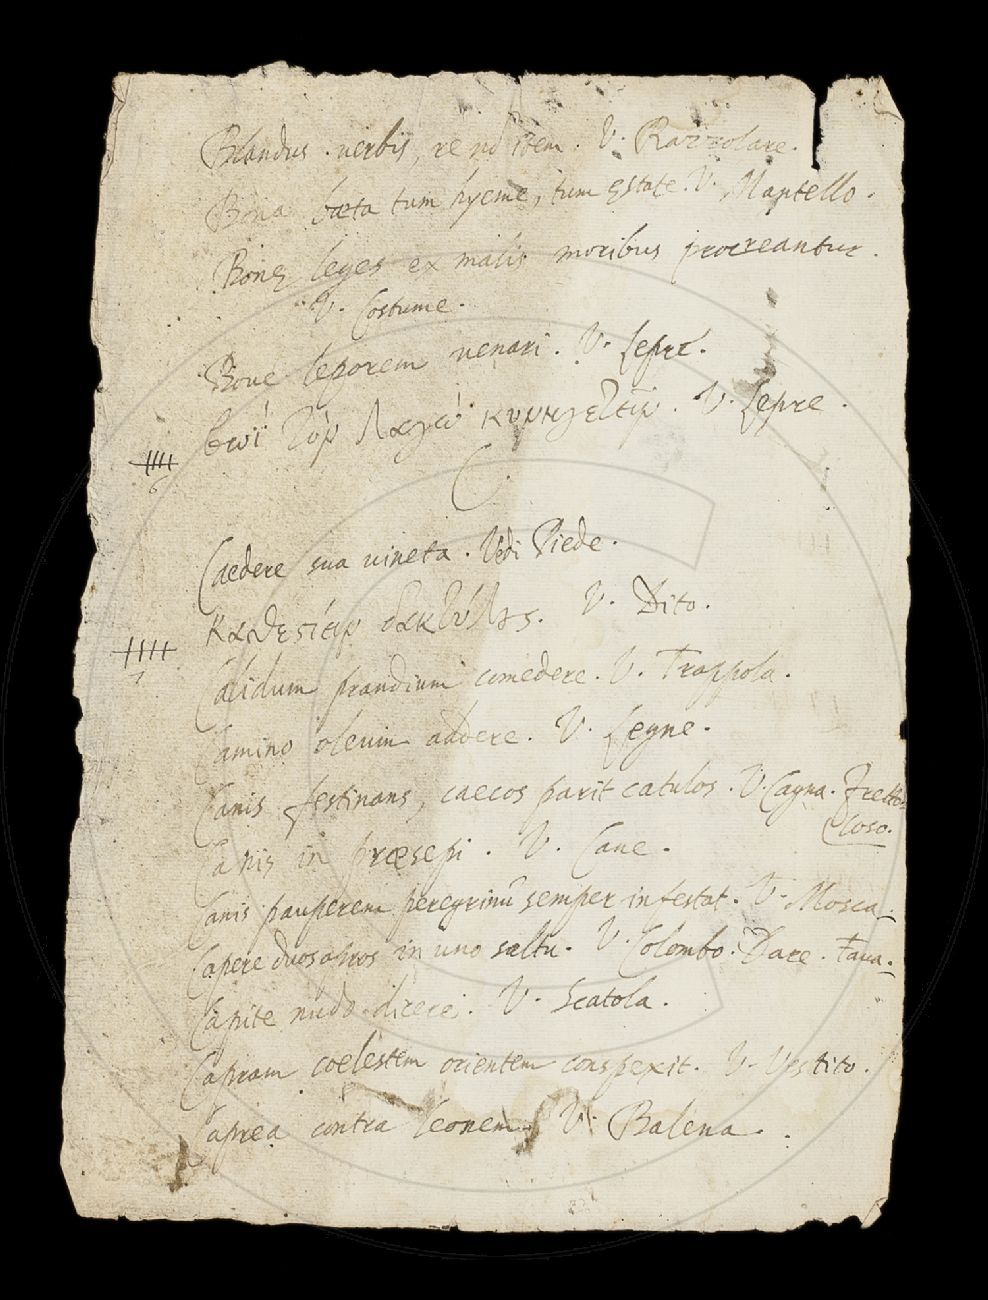 Blandus verbis, re nō idem. V. Razzolare.
Bona tum hyeme, tum ęstate. V. Mantello.
Bonę leges ex malis moribus procreantur.
V. Costume.
Bove leporem venari. V. Lepre.
βοῒ τὸν λαγὼ κυνηγετεῖν. V. Lepre.
C.
6
Caedere sua vineta. Vedi Piede.
δακτύλȣς. V. Dito.
1
Calidum prandium comedere. V. Trappola.
Camino oleum addere. V. Legne.
Canis festinans, caecos parit catulos. V. Cagna. Fretto-
loso.
Canis in præsepi. V. Cane.
Canis pauperem peregrinū semper infestat. V. Mosca.
Capere duos apros in uno saltu. V. Colombo. Dare. Fava.
Capite nudo dicere. V. Scatola.
Capram coelestem orientem conspexit. V. Vestito.
Caprea contra leonem. V. Balena.